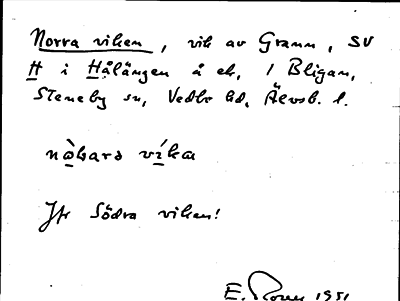 Norra viken, vik av Grann, SV
H i Hålängen å ek, / Bligan,
Steneby sn, Vedbo hd, Älvsb. l.
nòbara víka
Jfr Södra viken!
E. 1951